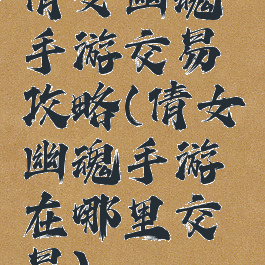 倩女幽魂
手游交易
攻略(倩女
幽魂手游
在哪里交
易)